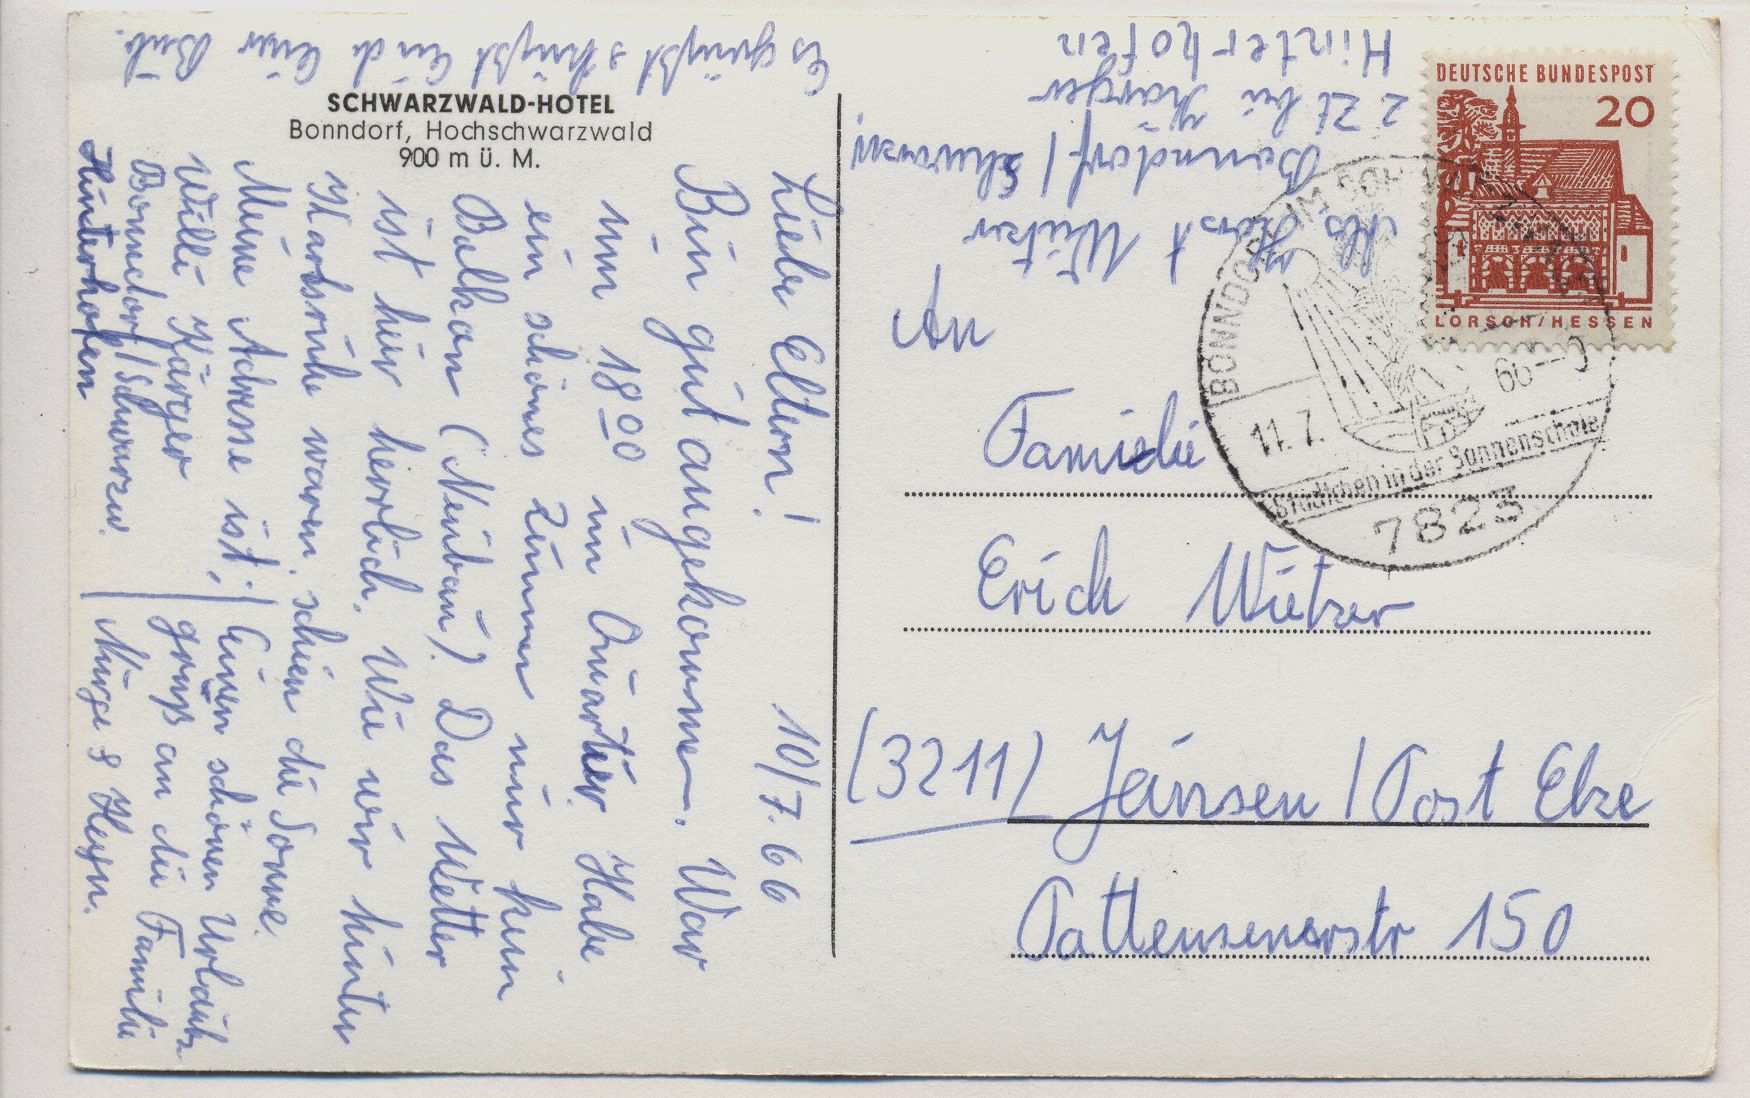 SCHWARZWALD-HOTEL
Bonndorf, Hochschwarzwald
900 m ü. M.
Liebe Eltern! 10/7. 66
Bin gut angekommen. War
um 18 00 im Quartier. Habe
ein schönes Zimmer nur kein
Balkon (Neubau). Das Wetter
ist hier herrlich. Wie wir hinter
Karlsruhe waren, schien die Sonne.
Meine Adresse ist:
Willi Karger
Bonndorf/Schwarzw.
Hinterhofen
Einen schönen Urlaubs-
gruß an die Familie
Es grüßt & küßt Euch Euer Bub.
Abs. Horst Wietzer
Bonndorf / Schwarzw.
z Zt bei Karger
Hinterhofen
DEUTSCHE BUNDESPOST
20
LORSCH/HESSEN
BONNDORF IM SCHWARZW
11.7. 66--9
Städtchen in der Sonnenschale
7823
An
Familie
Erich Wietzer
(3211) Jeinsen / Post Elze
Pattensenerstr 150